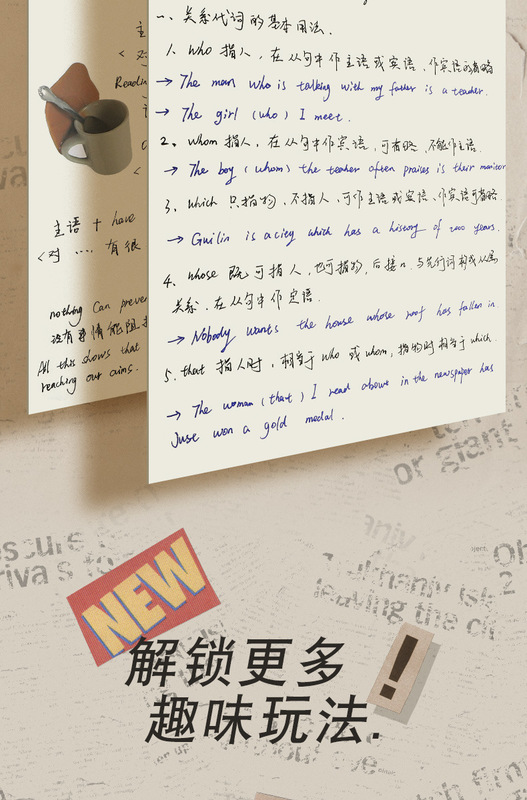 主
< 对
Readin
主语 + have
<对 .... 有很
nothing Can preve
没有事情能阻
All this shows that
reaching our aims.
一、关系代词的基本用法.
1. who 指人，在从句中作主语或宾语，作宾语可省略
→ The man who is talking with my father is a teacher.
→ The girl (who) I meet.
2. whom 指人，在从句中作宾语，可省略，不能作主语.
→ The boy (whom) the teacher often praises is their monitor
3. which 只指物，不指人，可作主语或宾语，作宾语可省略
→ Guilin is a city which has a history of 2000 years.
4. whose 既可指人，也可指物，后接n. 与先行词构成从属
关系，在从句中作定语.
→ Nobody wants the house whose roof has fallen in
5. that 指人时，相当于 who 或 whom，指物时相当于 which.
→ The woman (that) I read about in the newspaper has
Just won a gold medal.
or giant
leaving the
NEW
解锁更多
趣味玩法.
!